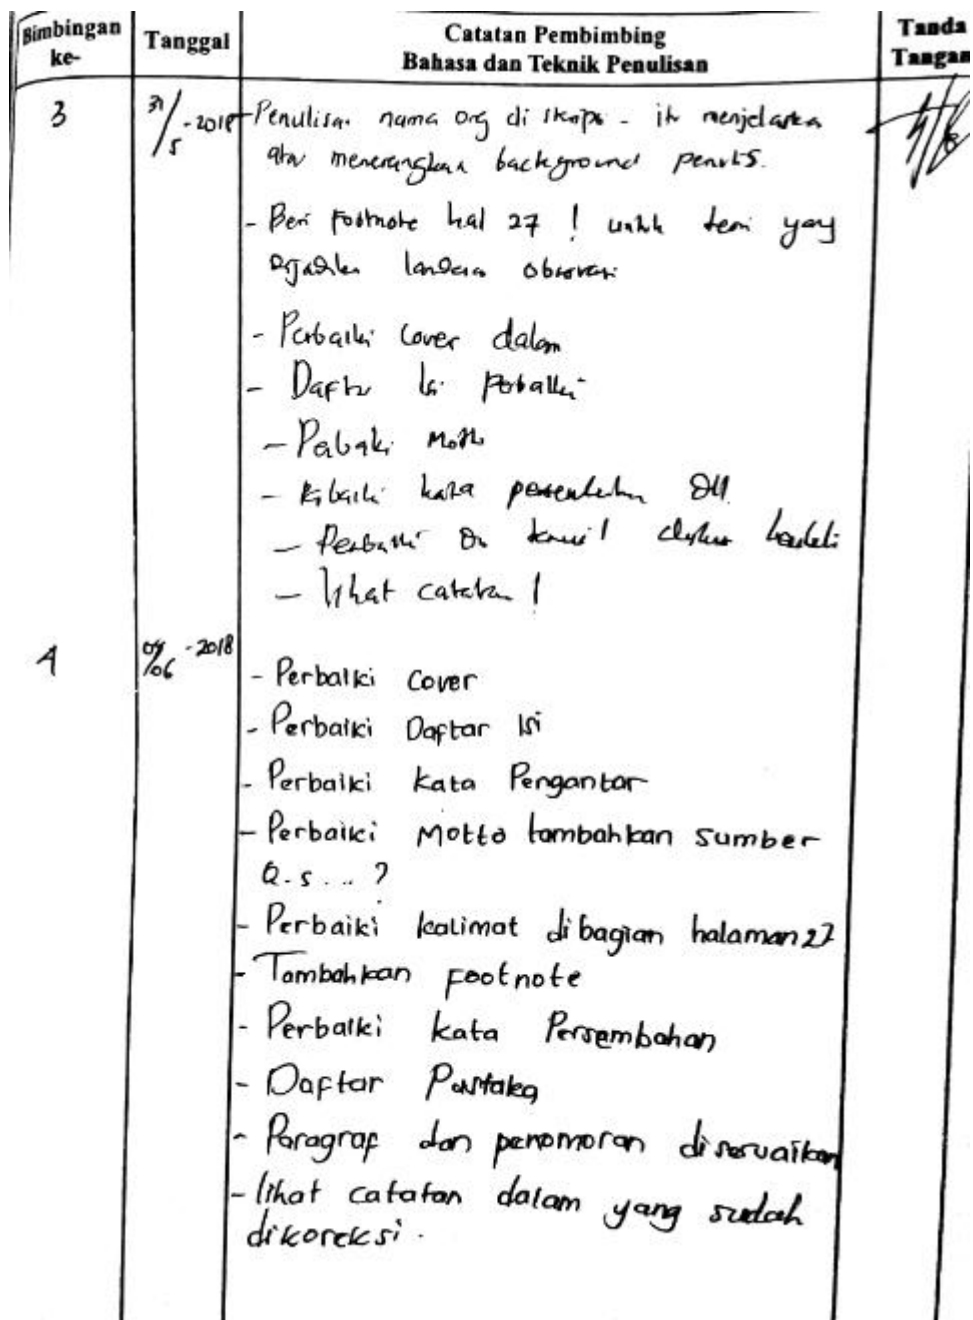 Bimbingan ke-
Tanggal
Catatan Pembimbing
Bahasa dan Teknik Penulisan
Tanda
Tangan
3
31/5 - 2018
- Penulisan nama org di skripsi - itu menjelaskan
atau menerangkan background penulis.
- Beri footnote hal 27 ! untuk teori yang
dijadikan landasan observasi
- Perbaiki cover dalam
- Daftar Isi perbaiki
- Perbaiki Motto
- Perbaiki kata persembahan Dll.
- Perbaiki
- lihat catatan !
4
04/06 - 2018
- Perbaiki Cover
- Perbaiki Daftar Isi
- Perbaiki Kata Pengantar
- Perbaiki Motto tambahkan sumber
Q.s ... ?
- Perbaiki kalimat dibagian halaman 27
- Tambahkan Footnote
- Perbaiki kata Persembahan
- Daftar Pustaka
- Paragraf dan penomoran disesuaikan
- lihat catatan dalam yang sudah
dikoreksi.